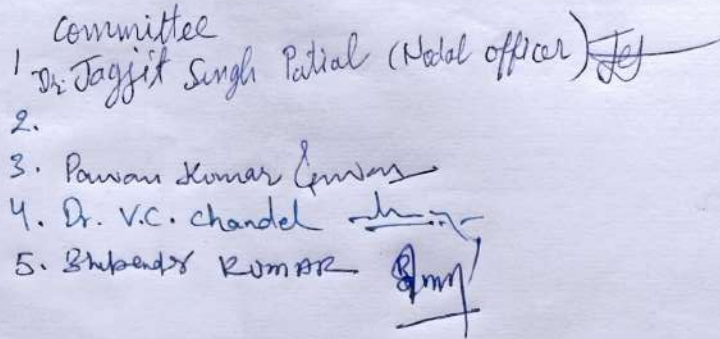 Committee
1 Dr. Jagjit Singh Patial (Nodal officer)
2.
3. Pawan Kumar
4. Dr. V.C. Chandel
5. Bhupender KUMAR